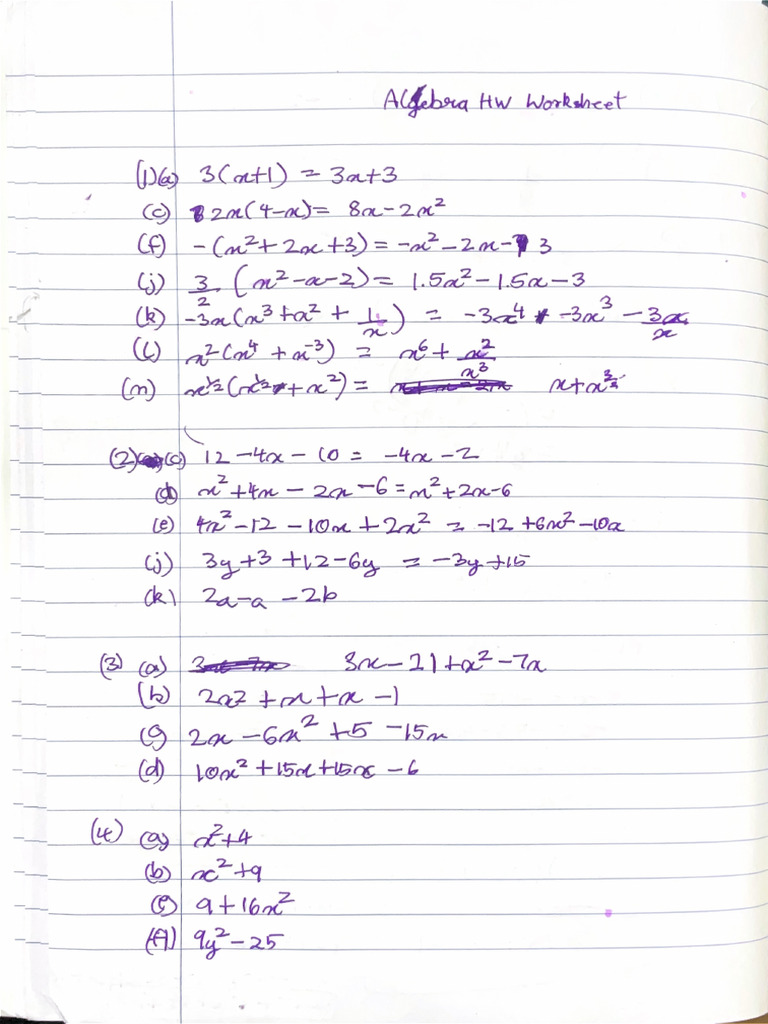 Algebra HW Worksheet
(1)(a) 3(x+1) = 3x+3
(c) 2x(4-x) = 8x - 2x²
(f) -(x² + 2x + 3) = -x² - 2x - 3
(j) 3/2 (x² - x - 2) = 1.5x² - 1.5x - 3
(k) -3x(x³ + x² + 1/x) = -3x⁴ - 3x³ - 3x/x
(l) x²(x⁴ + x⁻³) = x⁶ + x²/x³
(n) x^1/2(x^1/2 + x²) = x + x
(2) (c) 12 - 4x - 10 = -4x - 2
(d) x² + 4x - 2x - 6 = x² + 2x - 6
(e) 4x² - 12 - 10x + 2x² = -12 + 6x² - 10x
(j) 3y + 3 + 12 - 6y = -3y + 15
(k) 2a - a - 2b
(3) (a) 3x - 21 + x² - 7x
(b) 2x² + x + x - 1
(c) 2x - 6x² + 5 - 15x
(d) 10x² + 15x + 15x - 6
(4) (a) x² + 4
(b) x² + 9
(e) 9 + 16x²
(f) 9y² - 25